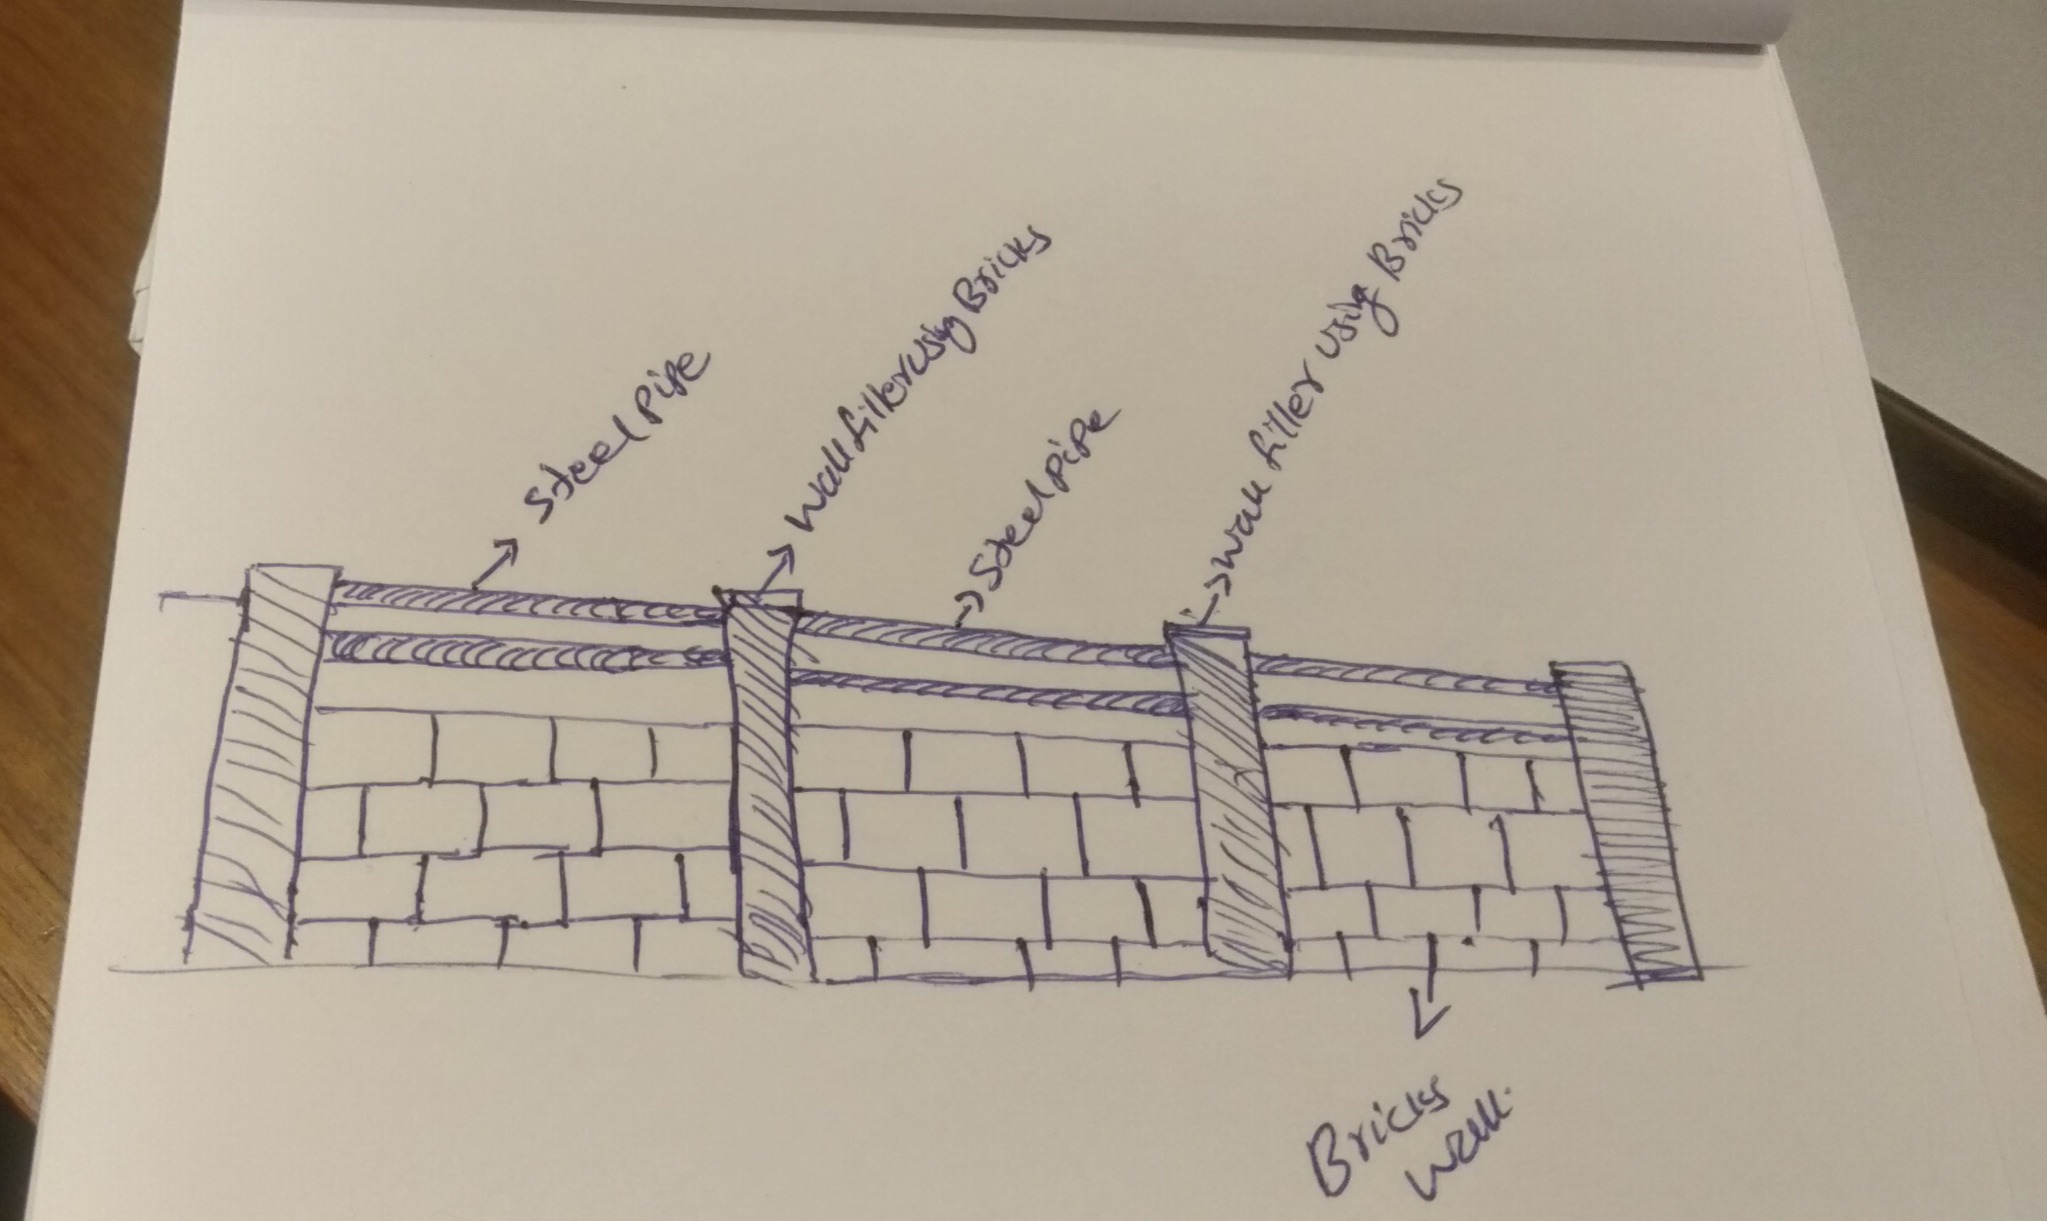 Steel pipe
Wall filler using Bricks
Steel pipe
Wall filler using Bricks
Bricks
wall.